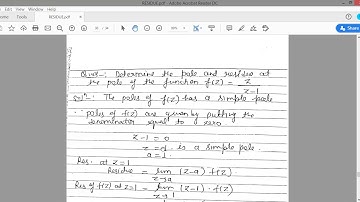 RESIDUE.pdf - Adobe Acrobat Reader DC
Home Tools RESIDUE.pdf ×
Sign In
Ques-: Determine the pole and residue at
the pole of the function f(z) = z
z-1
Solⁿ-: The poles of f(z) has a simple pole
∴ poles of f(z) are given by putting the
denominator equal to zero
z-1 = 0
z = 1 is a simple pole.
a = 1.
Res. at z=1
Residue = lim (z-a) f(z)
z→a
Res of f(z) at z=1 = lim (z-1) · f(z)
z→1